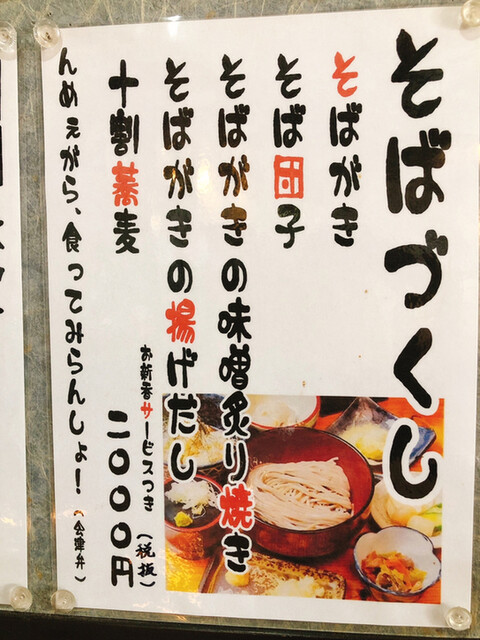 そばづくし
そばがき
そば団子
そばがきの味噌炙り焼き
そばがきの揚げだし
十割蕎麦
お新香サービスつき
二〇〇〇円
(税抜)
んめぇがら、食ってみらんしょ!
(会津弁)